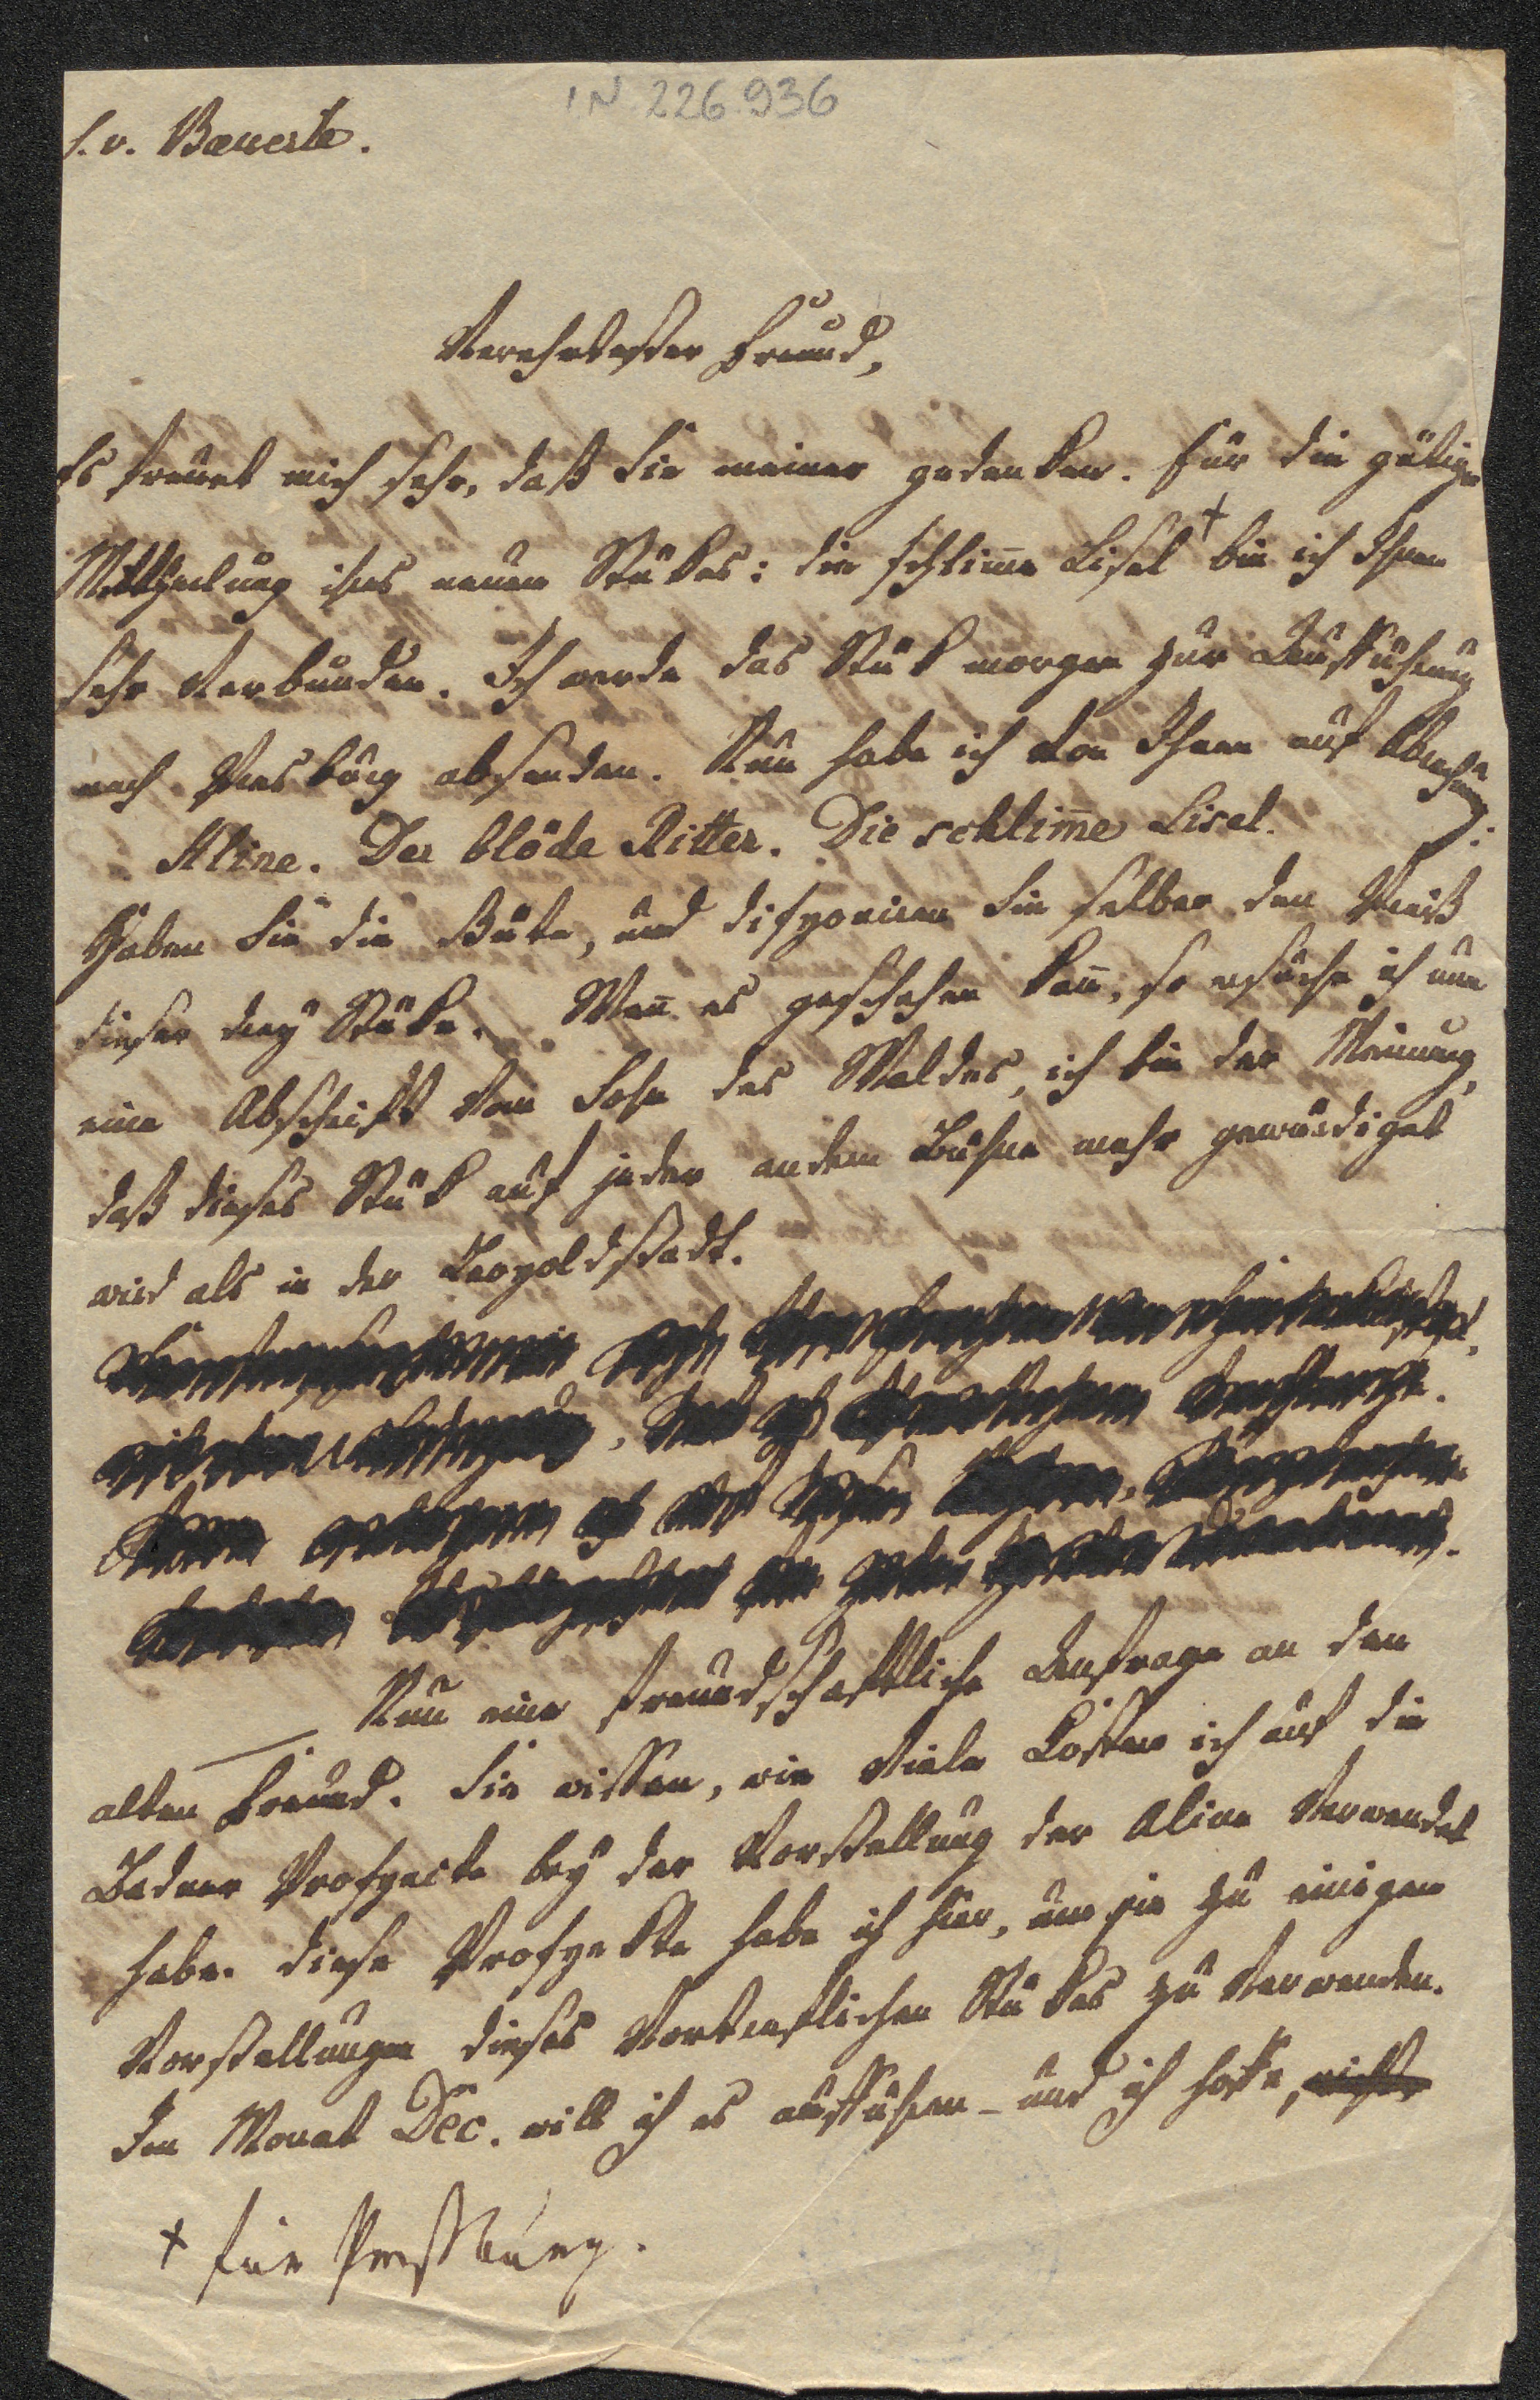 IN 226.936
H. v. Baeuerle.
Verehrtester Freund,
Es freuet mich sehr, daß Sie meiner gedenken. Für die gütige
Mittheilung ihres neuen Stükes: die schlim̅e Lisel + bin ich Ihnen
sehr verbunden. Ich werde das Stük morgen zur Aufführung
nach Presburg absenden. Nun habe ich von Ihnen auf
Aline. Der blöde Ritter. Die schlim̅e Lisel.
Haben Sie die Güte, und disponiren Sie selber den Preiß
dieser drey Stüke. Wen̅ es geschehen kan̅, so ersuche ich um
eine Abschrift vom Sohn des Waldes, ich bin der Meinung,
daß dieses Stük auf jeder andern Bühne mehr gewürdiget
wird als in der Leopoldstadt.
Nun eine freundschaftliche Anfrage an den
alten Freund. Sie wissen, wie viele Kosten ich auf die
Badner Prospecte bey der Vorstellung der Aline verwendet
habe. diese Prospekte habe ich hier, um sie zu einigen
Vorstellungen dieses vortreflichen Stükes zu verwenden.
Im Monat Dec. will ich es aufführen – und ich hoffe, nichts
+ für Pressburg.